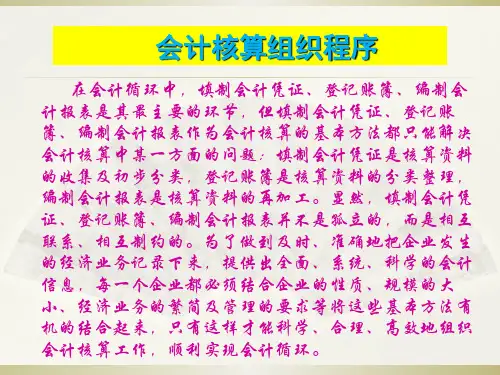 会计核算组织程序
在会计循环中，填制会计凭证、登记账簿、编制会
计报表是其最主要的环节，但填制会计凭证、登记账
簿、编制会计报表作为会计核算的基本方法都只能解决
会计核算中某一方面的问题：填制会计凭证是核算资料
的收集及初步分类，登记账簿是核算资料的分类整理，
编制会计报表是核算资料的再加工。显然，填制会计凭
证、登记账簿、编制会计报表并不是孤立的，而是相互
联系、相互制约的。为了做到及时、准确地把企业发生
的经济业务记录下来，提供出全面、系统、科学的会计
信息，每一个企业都必须结合企业的性质、规模的大
小、经济业务的繁简及管理的要求等将这些基本方法有
机的结合起来，只有这样才能科学、合理、高效地组织
会计核算工作，顺利实现会计循环。